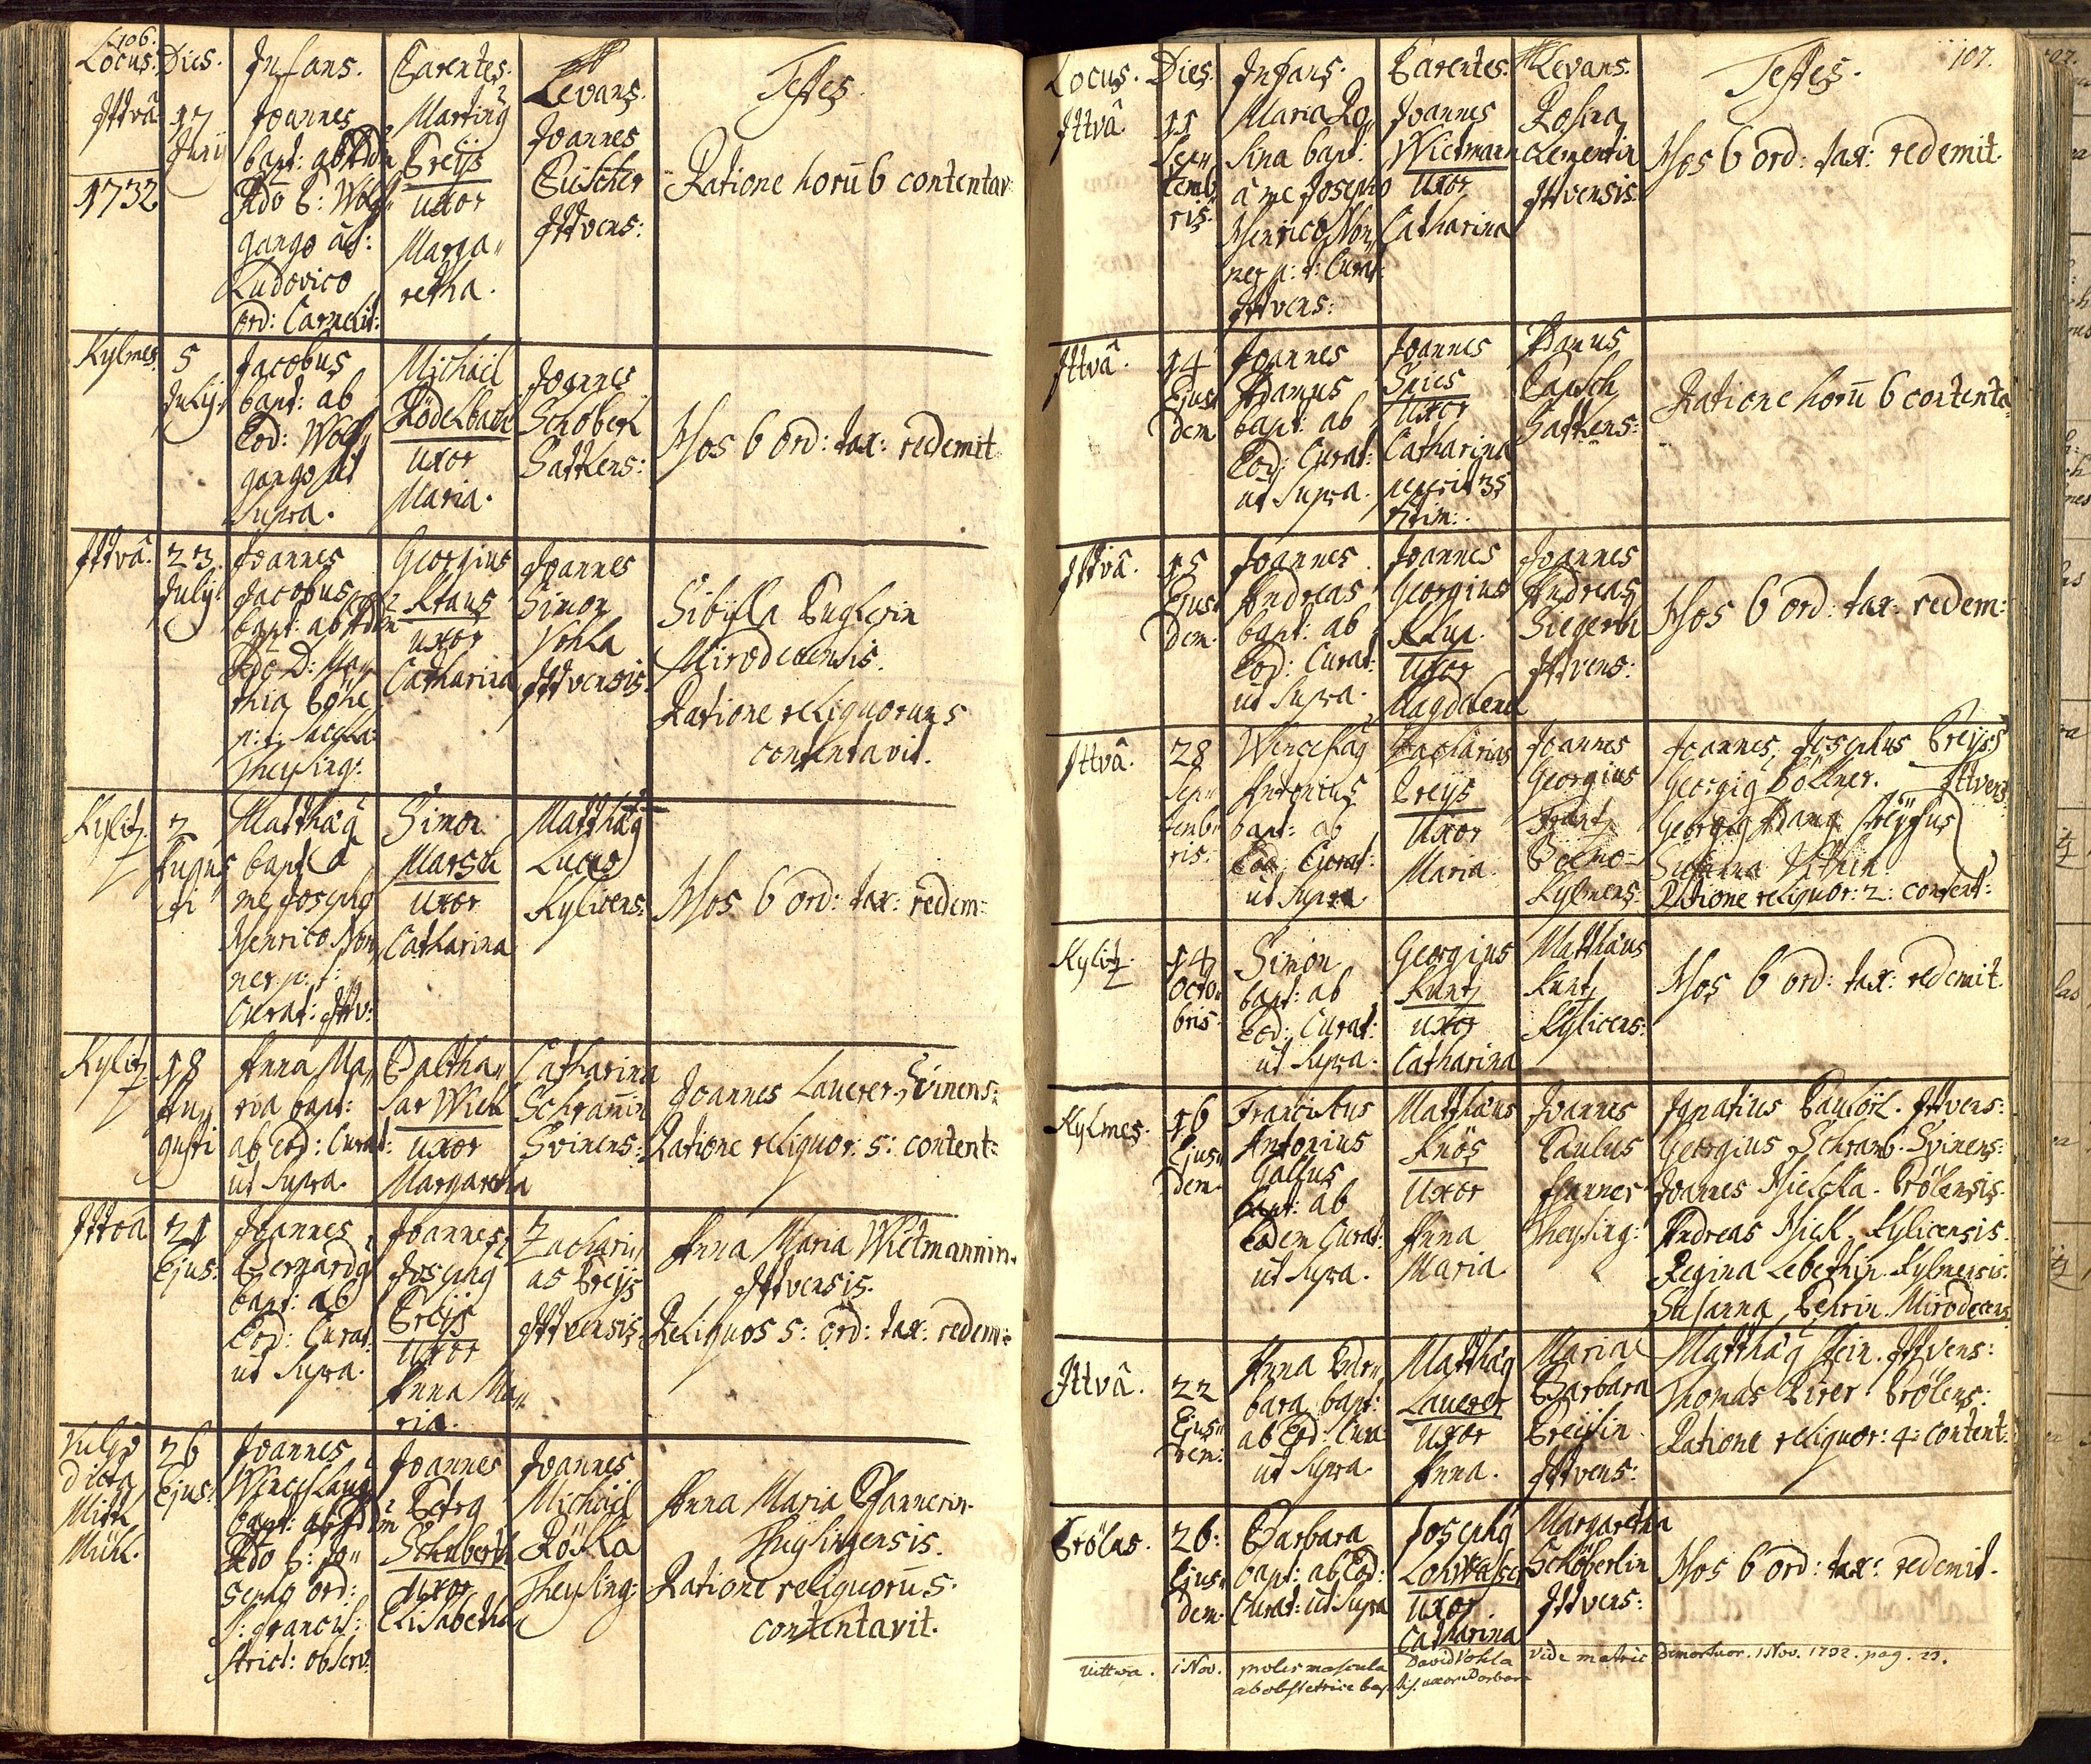 106.
Locus. Dies. Infans. Parentes. Levans. Testes.
Ittvâ 17 Junij 1732
Joannes
bapt: ab Adm
Rdo P: Wolf„
gango à S:
Ludovico
Ord: Carmelit:
Marting
Preÿs
uxor
Marga„
retha.
Joannes
Ittvens:
Ratione horū 6 contentav:
Kylmes. 5 Julij.
Jacobus
bapt: ab
Eod: Wolf„
gango ut
Supra.
Michael
Rödelbach
uxor
Maria.
Joannes
Schöberl
Sattlens:
Hos 6 ord: tax: redemit
Ittvâ. 23. Julij.
Joannes
Jacobus
bapt: ab Adm
Rdo D: Ma„
thia
p: t:
Theysing:
Georgius
Kraus
uxor
Catharina
Joannes
Simon
Vohla
Ittvensis.
Sibylla Puglerin
Mirodecensis.
Ratione reliquorum 5
contentavit.
Kylitz 2 Augus„
ti
Matthäg
bapt à
me Josepho
Henrico Non„
ner p: t:
Curat: Ittv:
Simon
Marsch
uxor
Catharina
Matthäg
Lucas
Kylicens:
Hos 6 ord: tax: redem:
Kylitz 18 Au„
gusti
Anna Ma„
ria bapt:
ab Eod: Curat:
ut Supra.
Baltha„
sar Wick
uxor
Margaretha
Catharina
Schramin
Svinens:
Joannes Lauerer Svinens:
Ratione reliquor: 5: content:
Ittvâ 21 Ejus:
Joannes
Bernardg
bapt: ab
Eod: Curat:
ut Supra.
Joannes
Josephg
Preÿs
Uxor
Anna Ma„
ria.
Zachari„
as Preÿs
Ittvensis.
Anna Maria Wietmannin.
Ittvensis.
Reliquos 5: ord: tax: redem:
Vulgo
dicta
Mitt
Mühl.
26 Ejus:
Joannes
Wenceslaus
bapt: ab Adm
Rdo P: Jo„
sepho Ord:
S: Francis:
Strict: observ:
Joannes
Petrg
Schuberth
uxor
Elisabetha
Joannes
Michäel
Röhla
Theysing:
Anna Maria Pfannerin
Thysingensis.
Ratione reliquorū 5.
contentavit.
107.
Locus. Dies. Infans. Parentes. Levans. Testes.
Ittvâ 11 Sep„
temb„
ris.
Maria Ro„
sina bapt:
à me Josepho
Henrico Non„
ner p: t: Curat:
Ittvens:
Joannes
Wietmann
uxor
Catharina
Rosina
Clementin
Ittvensis.
Hos 6 ord: tax: redemit.
Ittvâ. 14 Ejus„
dem
Joannes
Adamus
bapt: ab
Eod: Curat:
ut Supra.
Joannes
Spies
uxor
Catharina
peperit 3s
Adamus
Pausch
Sattlens:
Ratione horū 6 contenta„
Ittvâ. 15 Ejus„
dem.
Joannes
Andreas
bapt: ab
Eod: Curat:
ut Supra.
Joannes
Georgius
uxor
Magdalena
Joannes
Andreas
Siegerth
Ittvens:
Hos 6 ord: tax: redem:
Ittvâ. 28 Sep„
temb„
ris.
Wenceslag
Antonius
bapt: ab
Eod: Curat:
ut Supra
Zacharias
Preÿs
Uxor
Maria.
Joannes
Georgius
Frantz
Kylmens:
Joannes Josephus Preÿs
Georgig Böllner. Ittvens:
Georgig Adamg
Susanna
Ratione reliquor: 2: content:
Kylitz. 14 Octo„
bris.
Simon
bapt: ab
Eod: Curat:
ut Supra.
Georgius
Kuntz
uxor
Catharina
Matthäus
Kuntz
Kylicens:
Hos 6 ord: tax: redemit.
Kylmes. 16 Ejus„
dem.
Franciscus
Antonius
Gallus
bapt: ab
Eodem Curat:
ut Supra.
Matthäus
Knös
Uxor
Anna
Maria
Joannes
Paulus
Theysing:
Ignatius Pauliöl. Ittvens:
Georgius Schramb. Svinens:
Joannes Hielcka. Prölensis.
Andreas Hick. Kylicensis.
Regina Lebethin. Kylmensis.
Susanna Behrin. Mirodecens
Ittvâ. 22 Ejus„
dem:
Anna Bar„
bara bapt:
ab Eod: Cura
ut Supra.
Matthäg
Lauerer
Uxor
Anna.
Maria
Barbara
Preÿsin
Ittvens:
Matthäg Hein. Ittvens:
Thomas Pirer. Prölens:
Ratione reliquor: 4: content:
Prölas. 26: Ejus„
dem.
Barbara
bapt: ab Eod:
Curat: ut Supra
Josephg
Lohwaser
uxor
Catharina
Margaretha
Schöberlin
Ittvens:
Hos 6 ord: tax: redemit.
Vittwa. 1 Nov. proles mascula
ab obstetrice bapt.
David Vohla
uxor Barbara
Vide matric demortuor. 1 Nov. 1732. pag. 27.